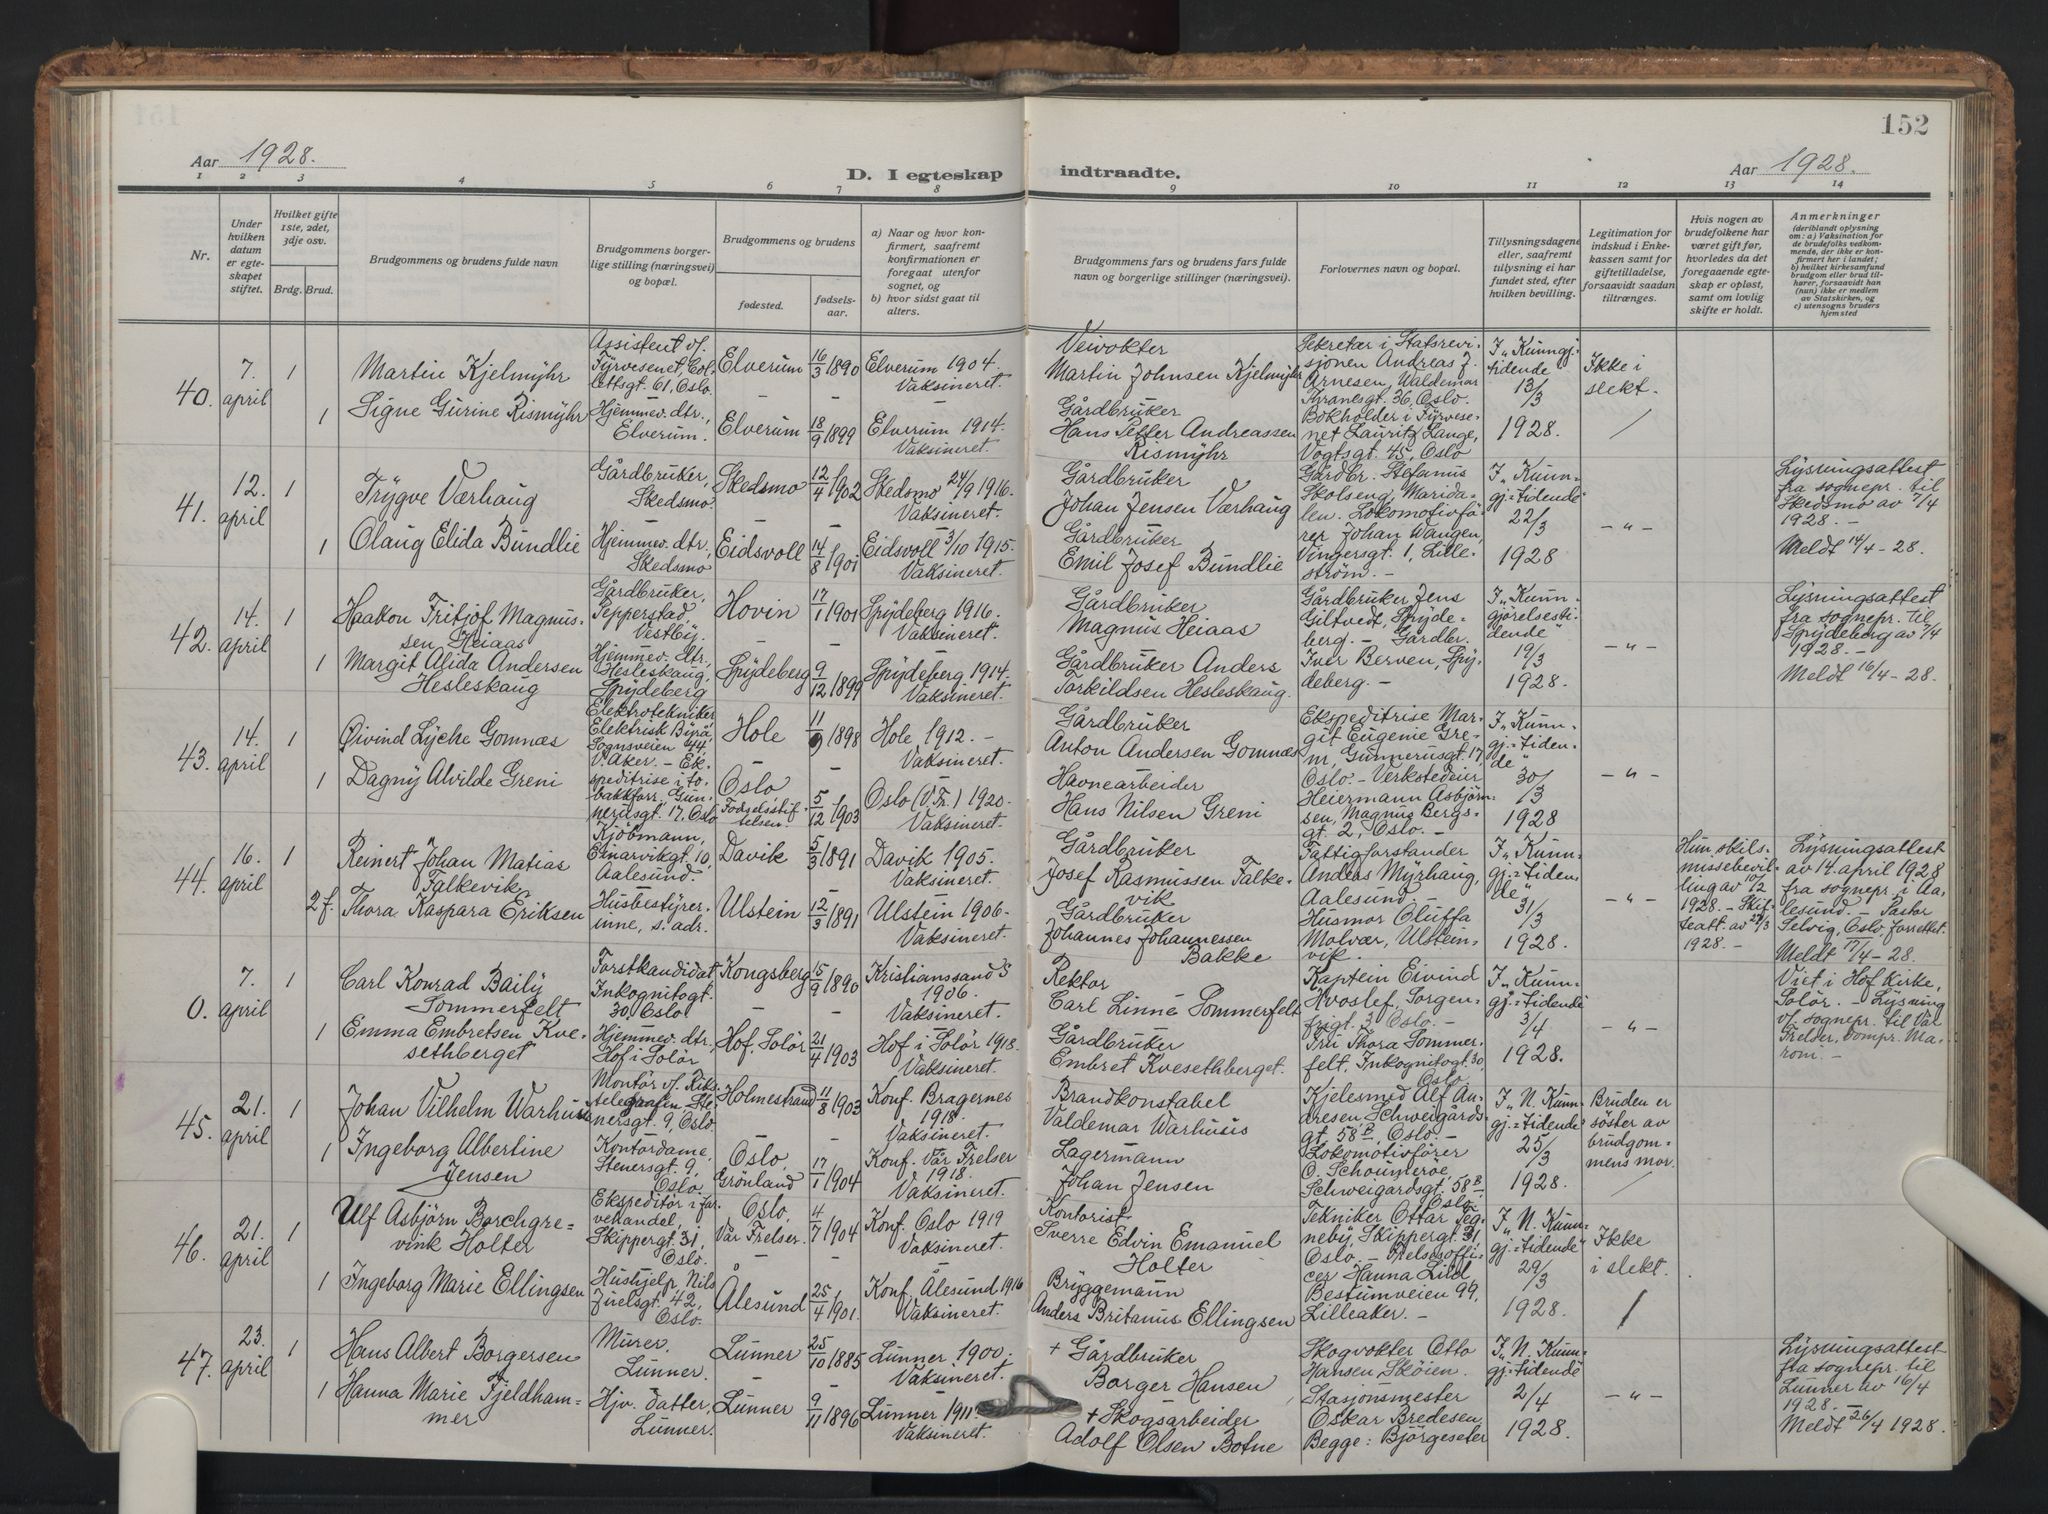 152
Aar 1928.
D. I egteskap indtraadte.
Aar 1928.
1 2 3 4 5 6 7 8 9 10 11 12 13 14
Nr.
Under
hvilken
datum
er egte-
skapet
stiftet.
Hvilket gifte
1ste, 2det,
3dje osv.
Brdg. Brud.
Brudgommens og brudens fulde navn
Brudgommens borger-
lige stilling (næringsvei)
og bopæl.
Brudgommens og brudens
fødested.
fødsels-
aar.
a) Naar og hvor kon-
firmert, saafremt
konfirmationen er
foregaat utenfor
sognet, og
b) hvor sidst gaat til
alters.
Brudgommens fars og brudens fars fulde
navn og borgerlige stillinger (næringsvei).
Forlovernes navn og bopæl.
Tillysningsdagene
eller, saafremt
tillysning ei har
fundet sted, efter
hvilken bevilling.
Legitimation for
indskud i Enke-
kassen samt for
giftetilladelse,
forsaavidt saadan
tiltrænges.
Hvis nogen av
brudefolkene har
været gift før,
hvorledes da det
foregaaende egte-
skap er opløst,
samt om lovlig
skifte er holdt.
Anmerkninger
(deriblandt oplysning
om: a) Vaksination for
de brudefolks vedkom-
mende, der ikke er kon-
firmert her i landet;
b) hvilket kirkesamfund
brudgom eller brud til-
hører, forsaavidt han
(hun) ikke er medlem
av Statskirken, og
c) utensogns bruders
hjemsted
40.
7.
april
1
Martin Kjelmyhr
Assistent v/
Fyrvesenet, Col-
lettsgt. 61, Oslo.
Elverum
16/3 1890
Elverum 1904.
Vaksineret.
1
Signe Gurine Rismyhr
Hjemmev. dtr.,
Elverum.
Elverum
18/9 1899
Elverum 1914.
Vaksineret.
Veivokter
Martin Johnsen Kjelmyhr
Gårdbruker
Hans Petter Andreassen
Rismyhr
Sekretær i Statsrevi-
sjonen Andreas J.
Arnesen, Waldemar
Thranesgt. 36, Oslo.
Bokholder i Fyrvese-
net Lauritz Lange,
Vogtsgt. 45, Oslo
I „Kunngj.-
tidende"
13/3
1928.
Ikke i
slekt.
41.
12.
april
1
Trygve Værhaug
Gårdbruker,
Skedsmo.
Skedsmo
12/4 1902
Skedsmo 24/9 1916.
Vaksineret.
1
Olaug Elida Bundlie
Hjemmev. dtr.,
Skedsmo
Eidsvoll
14/8 1901
Eidsvoll 3/10 1915.
Vaksineret.
Gårdbruker
Johan Jensen Værhaug
Gårdbruker
Emil Josef Bundlie
Gårdbr. Stefanus
Skolseng, Marida-
len. Lokomotivfø-
rer Johan Wangen,
Vingersgt. 1, Lille-
strøm. –
I „Kunn-
gj.-tidende"
22/3
1928
– " –
Lysningsattest
fra sognepr. til
Skedsmo av 7/4
1928. –
Meldt 14/4 - 28.
42.
14.
april
1
Haakon Fritjof Magnus-
sen Heiaas
Gårdbruker,
Pepperstad,
Vestby.
Hovin
17/1 1901
Spydeberg 1916.
Vaksineret.
1
Margit Alida Andersen
Hesleskaug
Hjemmev. dtr.,
Hesleskaug,
Spydeberg
Spydeberg
9/12 1899
Spydeberg 1914.
Vaksineret.
Gårdbruker
Magnus Heiaas
Gårdbruker Anders
Torkildsen Hesleskaug.
Gårdbruker Jens
Giltvedt, Spyde-
berg. – Gårdbr.
Iver Berven, Spy-
deberg. –
I „Kunn-
gjörelsesti-
dende"
19/3
1928.
– " –
Lysningsattest
fra sognepr. til
Spydeberg av 7/4
1928. –
Meldt 16/4 - 28.
43.
14.
april
1
Øivind Lyche Gomnæs
Elektrotekniker
Elektrisk Byrå,
Sognsveien 44,
V. Aker. – Ek-
speditrise i to-
bakkforr., Gun-
nerusgt. 17, Oslo
Hole
11/9 1898
Hole 1912. –
Vaksineret.
1
Dagny Alvilde Greni
Oslo
Fødselsstif-
telsen.
5/12 1903
Oslo (V. Fr.) 1920.
Vaksineret.
Gårdbruker
Anton Andersen Gomnæs
Havnearbeider
Hans Nilsen Greni
Ekspeditrise Mar-
git Eugenie Gre-
ni, Gunnerusgt. 17,
Oslo. – Verkstedeier
Heiermann Asbjörn-
sen, Magnus Bergs-
gt. 2, Oslo. –
I „Kunn-
gj.-tiden-
de"
30/3
1928
– " –
44.
16.
april
1
Reinert Johan Matias
Falkevik
Kjöbmann,
Einarvikgt. 10,
Aalesund.
Davik
5/3 1891
Davik 1905.
Vaksineret.
2 f.
Thora Kaspara Eriksen
Husbestyrer-
inne, s. adr.
Ulstein
12/3 1891
Ulstein 1906.
Vaksineret.
Gårdbruker
Josef Rasmussen Falke-
vik
Gårdbruker
Johannes Johannessen
Bakke
Fattigforstander
Anders Myrhaug,
Aalesund. –
Husmor Oluffa
Molvær, Ulstein-
vik.
I „Kunn-
gj.-tiden-
de"
31/3
1928.
– " –
Hun skils-
missebevil-
ling av 10/2
1928. – Skif-
teatt. av 27/3
1928. –
Lysningsattest
av 14. april 1928
fra sognepr. i Aa-
lesund. – Pastor
Selvig, Oslo, forrettet.
Meldt 17/4 - 28.
0.
7.
april
1
Carl Konrad Baily
Sommerfelt
Forstkandidat
Inkognitogt.
30, Oslo
Kongsberg
15/9 1890
Kristianssand S
1906.
Vaksineret.
1
Emma Embretsen Kve-
sethberget
Hjemmev. dtr.,
Hof i Solör
Hof, Solör
21/4 1903
Hof i Solör 1918.
Vaksineret.
Rektor
Carl Linné Sommerfelt
Gårdbruker
Embret Kvesethberget.
Kaptein Eivind
Hvoslef, Sorgen-
frigt. 3, Oslo. –
Fru Thora Sommer-
felt, Inkognitogt. 30,
Oslo.
I „Kunn-
gj.-tidende"
3/4
1928.
– " –
Viet i Hof Kirke,
Solör. – Lysning
v/ sognepr. til Vår
Frelser, Dompr. Ma-
roni. –
45.
21.
april
1
Johan Vilhelm Warhuus
Montör v/ Riks-
telegrafen Ste-
nersgt. 9, Oslo
Holmestrand
11/8 1903
Konf. Bragernes
1918.
Vaksineret.
1
Ingeborg Albertine
Jensen
Kontordame,
Stenersgt. 9,
Oslo
Oslo,
Grönland
17/1 1904
Konf. Vår Frelser
1918.
Vaksineret.
Brandkonstabel
Valdemar Warhusis
Lagermann
Johan Jensen
Kjelesmed Alf An-
dresen Schweigårds-
gt. 58 B, Oslo. –
Lokomotivfører
O. Schoumerøe,
Schweigardsgt. 58 B
Oslo
I „N. Kunn-
gj.-tidende
25/3
1928.
Bruden er
søster av
brudgom-
mens mor.
46.
21.
april
1
Ulf Asbjörn Borchgre-
vink Holter
Ekspeditör i far-
vehandel,
Skippergt. 31,
Oslo.
Oslo,
Vår Frelser.
4/7 1904
Konf. Oslo 1919
Vaksineret.
1
Ingeborg Marie Ellingsen
Hushjelp, Nils
Juelsgt. 42,
Oslo.
Ålesund
25/4 1901.
Konf. Ålesund 1916
Vaksineret.
Kontorist
Sverre Edvin Emanuel
Holter
Bryggemann
Anders Britanus Ellingsen
Tekniker Ottar Teg-
neby, Skippergt. 31,
Oslo. – Frelsesoffi-
cer Hanna Lild
Bestumveien 99,
Lilleaker. –
I „N. Kunn-
gj.-tidende"
29/3
1928.
Ikke
i slekt.
47.
23.
april
1
Hans Albert Borgersen
Murer,
Lunner.
Lunner
25/10 1885
Lunner 1900.
Vaksineret.
1
Hanna Marie Fjeldham-
mer
Hjv. datter,
Lunner.
Lunner
9/11 1896
Lunner 1911.
Vaksineret.
+ Gårdbruker
Borger Hansen
+ Skogsarbeider
Adolf Olsen Botne
Skogvokter Otto
Hansen Sköien.
Stasjonsmester
Oskar Bredesen,
Begge: Björgeseter
I „N. Kunn-
gj.-tidende"
2/4
1928.
– " –
Lysningsattest
fra sognepr. til
Lunner av 16/4
1928. –
Meldt 26/4 1928.